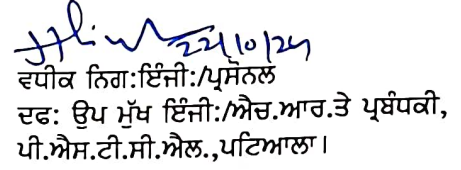 22/10/24
ਵਧੀਕ ਨਿਗ:ਇੰਜੀ:/ਪ੍ਰਸੋਨਲ
ਦਫ: ਉਪ ਮੁੱਖ ਇੰਜੀ:/ਐਚ.ਆਰ.ਤੇ ਪ੍ਰਬੰਧਕੀ,
ਪੀ.ਐਸ.ਟੀ.ਸੀ.ਐਲ.,ਪਟਿਆਲਾ।